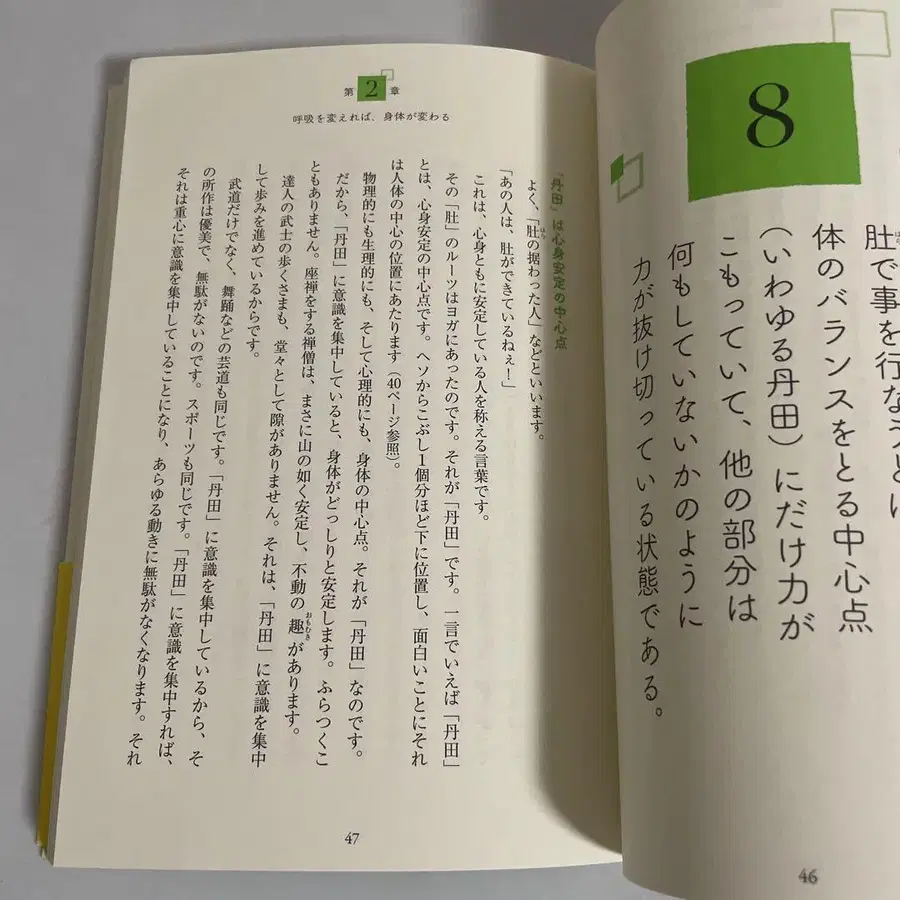 8
肚で事を行なうと
体のバランスをとる中心点
（いわゆる丹田）にだけ力が
こもっていて、他の部分は
何もしていないかのように
力が抜け切っている状態である。
46
第2章
呼吸を変えれば、身体が変わる
「丹田」は心身安定の中心点
よく、「肚の据わった人」などといいます。
「あの人は、肚ができているねぇ！」
これは、心身ともに安定している人を称える言葉です。
その「肚」のルーツはヨガにあったのです。それが「丹田」です。一言でいえば「丹田」
とは、心身安定の中心点です。ヘソからこぶし1個分ほど下に位置し、面白いことにそれ
は人体の中心の位置にあたります（40ページ参照）。
物理的にも生理的にも、そして心理的にも、身体の中心点。それが「丹田」なのです。
だから、「丹田」に意識を集中していると、身体がどっしりと安定します。ふらつくこ
ともありません。座禅をする禅僧は、まさに山の如く安定し、不動の趣があります。
達人の武士の歩くさまも、堂々として隙がありません。それは、「丹田」に意識を集中
して歩みを進めているからです。
武道だけでなく、舞踊などの芸道も同じです。「丹田」に意識を集中しているから、そ
の所作は優美で、無駄がないのです。スポーツも同じです。「丹田」に意識を集中すれば、
それは重心に意識を集中していることになり、あらゆる動きに無駄がなくなります。それ
47